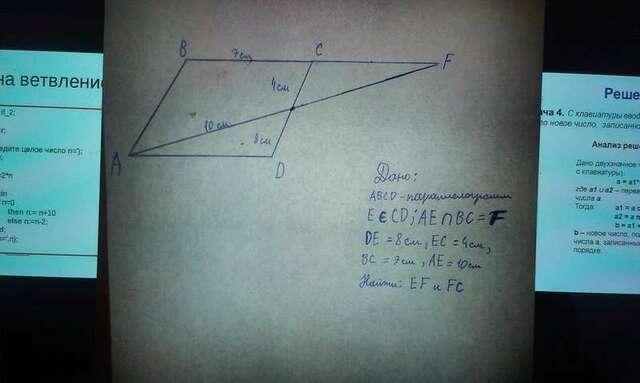 на ветвление
if_2;
r;
едите целое число n=');
);
=2*n
in
n=0
then n:= n+10
else n:=n-2;
=',n);
B
7см
C
F
4см
10см
8см
A
D
Дано:
ABCD - параллелограмм
E ∈ CD; AE ∩ BC = F
DE = 8см, EC = 4см,
BC = 7см, AE = 10см
Найти: EF и FC
Реше
ача 4. С клавиатуры ввод
то новое число, записанно
Анализ реше
Дано двухзначное
с клавиатуры):
a = a1*
где a1 и a2 – перва
числа a.
Тогда: a1 = a d
a2 = a
b = a1 +
b – новое число, пол
числа a, записанны
порядке.